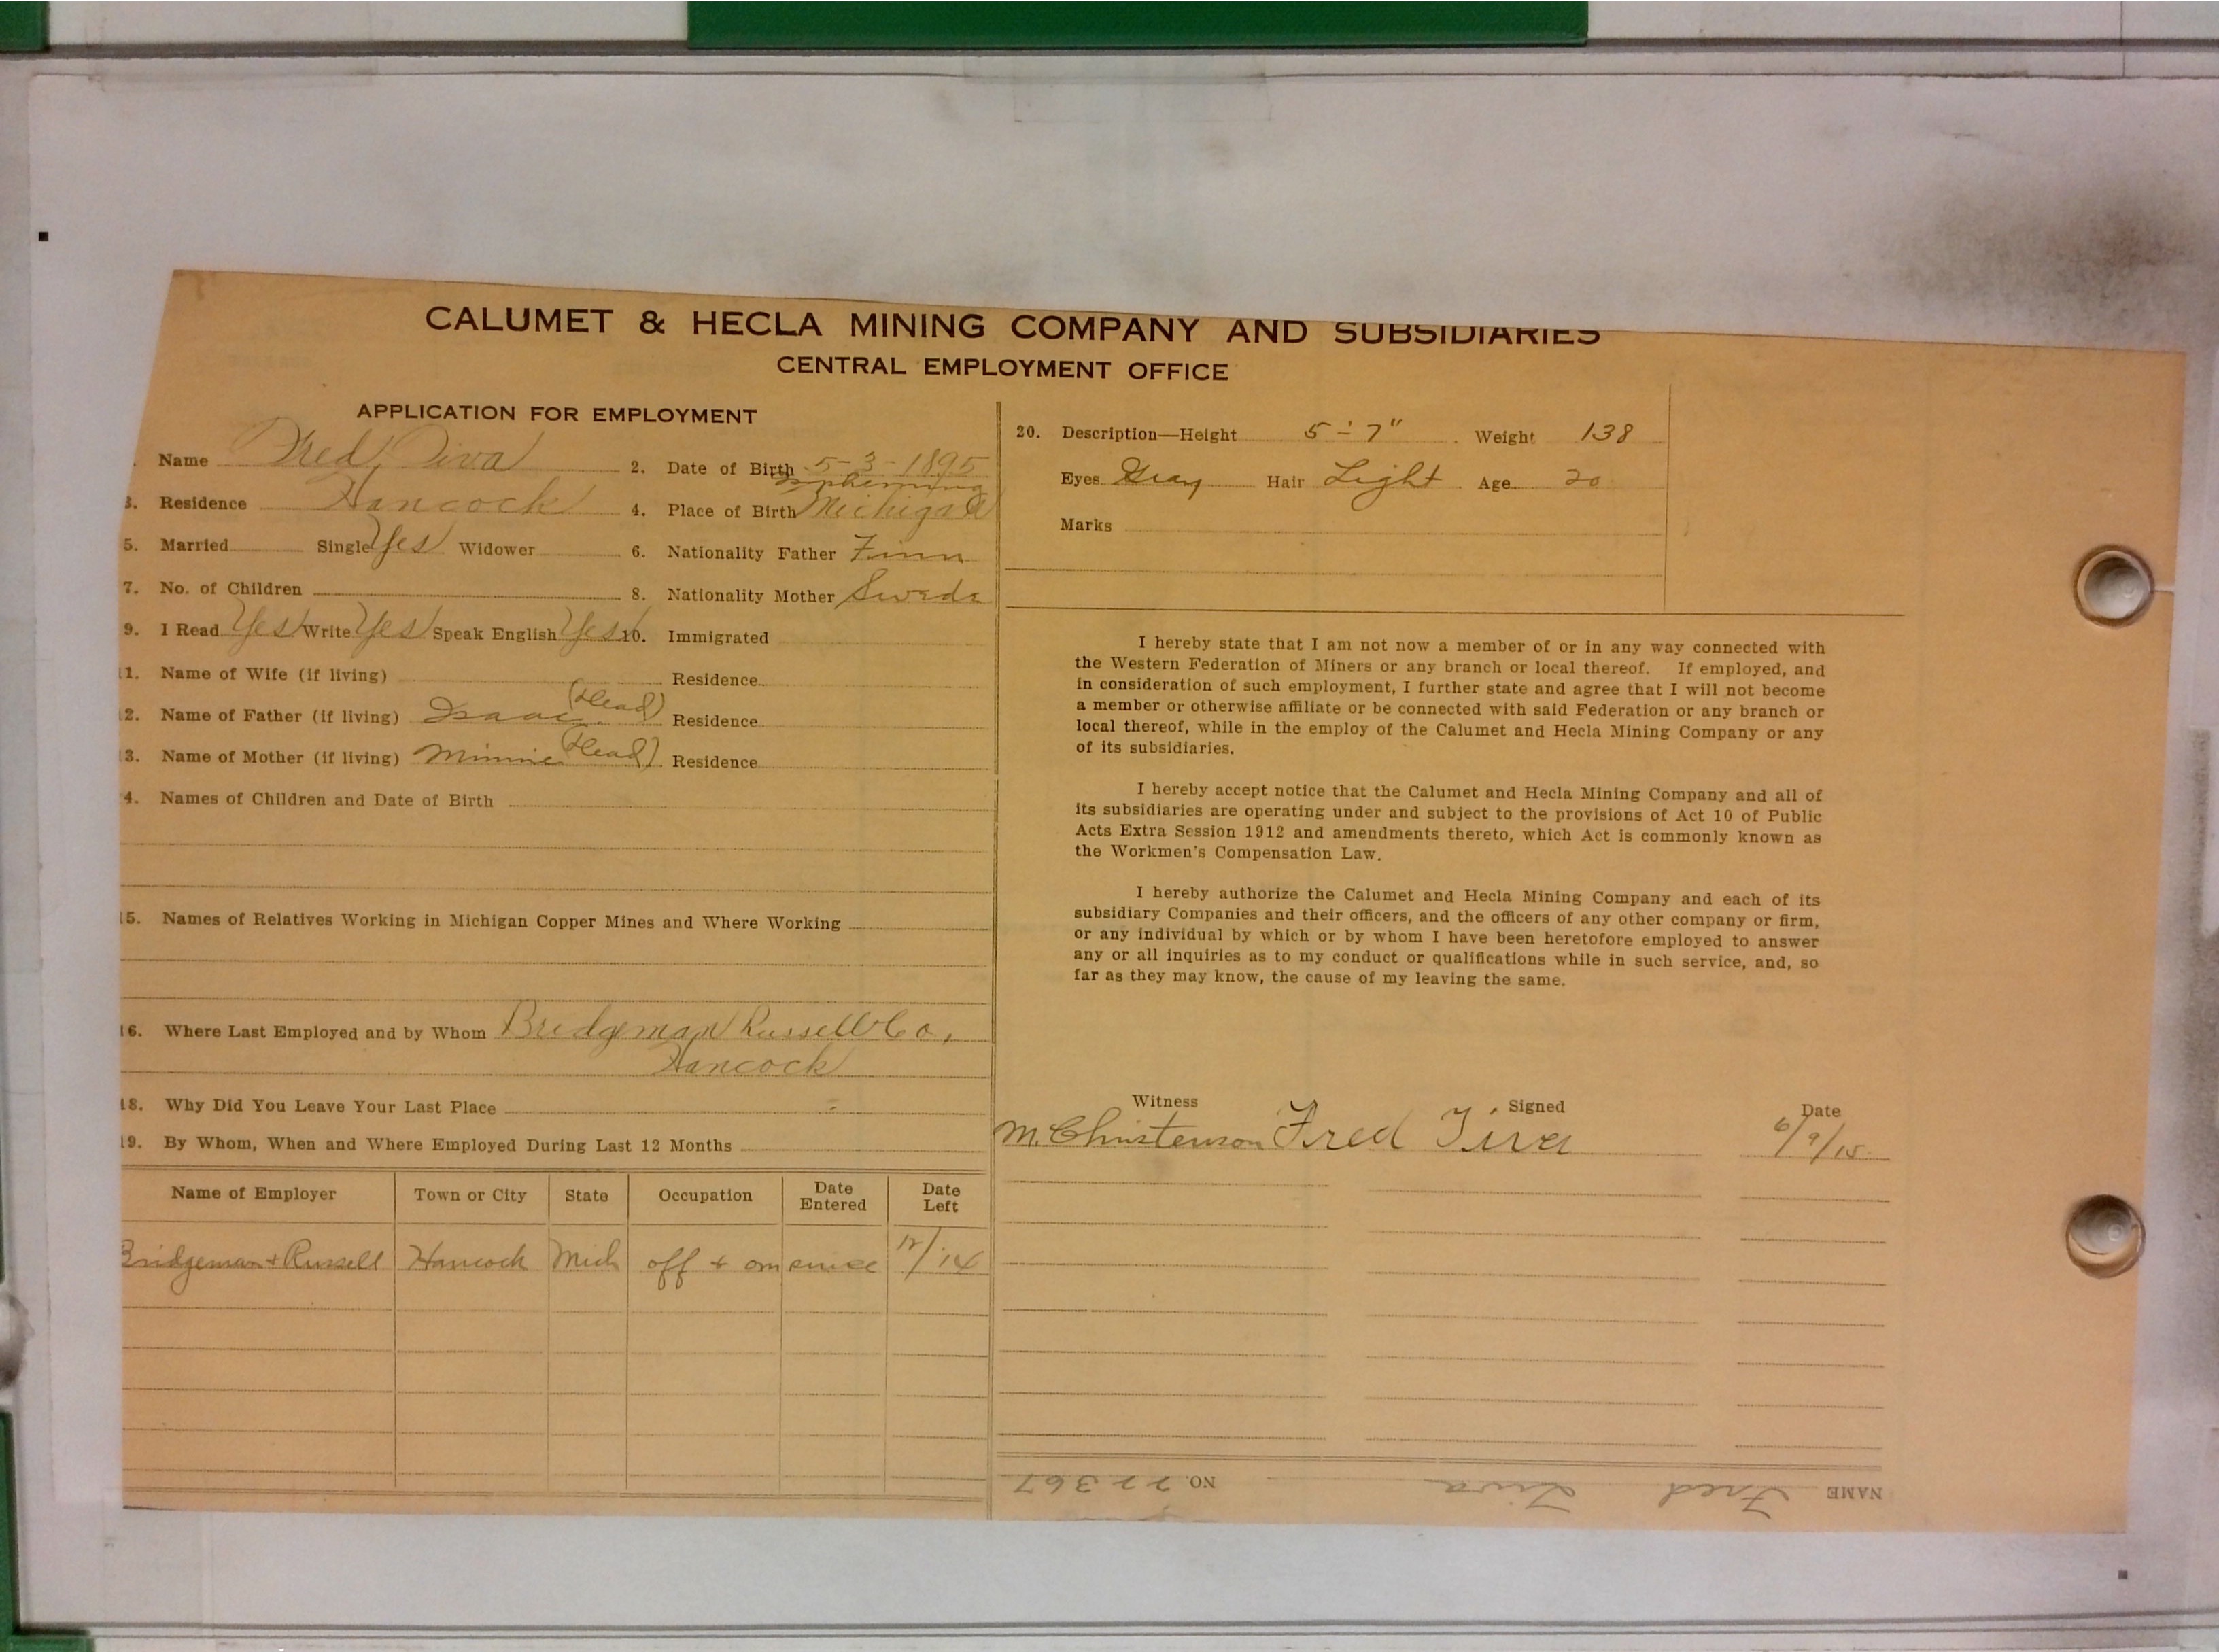 CALUMET & HECLA MINING COMPANY AND SUBSIDIARIES
CENTRAL EMPLOYMENT OFFICE
APPLICATION FOR EMPLOYMENT
Name Fred Tiva 2. Date of Birth 5-3-1895
Ishpeming
3. Residence Hancock 4. Place of Birth Michigan
5. Married Single Yes Widower 6. Nationality Father Finn
7. No. of Children 8. Nationality Mother Swede
9. I Read Yes Write Yes Speak English Yes 10. Immigrated
11. Name of Wife (if living) Residence
12. Name of Father (if living) Isaac (Dead) Residence
13. Name of Mother (if living) Minnie (Dead) Residence
14. Names of Children and Date of Birth
15. Names of Relatives Working in Michigan Copper Mines and Where Working
16. Where Last Employed and by Whom Bridgeman Russell Co,
Hancock
18. Why Did You Leave Your Last Place
19. By Whom, When and Where Employed During Last 12 Months
Name of Employer Town or City State Occupation Date Entered Date Left
Bridgeman + Russell Hancock Mich off + on since 12/14
20. Description—Height 5-7" Weight 138
Eyes Gray Hair Light Age 20
Marks
I hereby state that I am not now a member of or in any way connected with
the Western Federation of Miners or any branch or local thereof. If employed, and
in consideration of such employment, I further state and agree that I will not become
a member or otherwise affiliate or be connected with said Federation or any branch or
local thereof, while in the employ of the Calumet and Hecla Mining Company or any
of its subsidiaries.
I hereby accept notice that the Calumet and Hecla Mining Company and all of
its subsidiaries are operating under and subject to the provisions of Act 10 of Public
Acts Extra Session 1912 and amendments thereto, which Act is commonly known as
the Workmen's Compensation Law.
I hereby authorize the Calumet and Hecla Mining Company and each of its
subsidiary Companies and their officers, and the officers of any other company or firm,
or any individual by which or by whom I have been heretofore employed to answer
any or all inquiries as to my conduct or qualifications while in such service, and, so
far as they may know, the cause of my leaving the same.
Witness Signed Date
M. Christenson Fred Tiva 6/9/15
NAME Fred Tiva NO. 22367